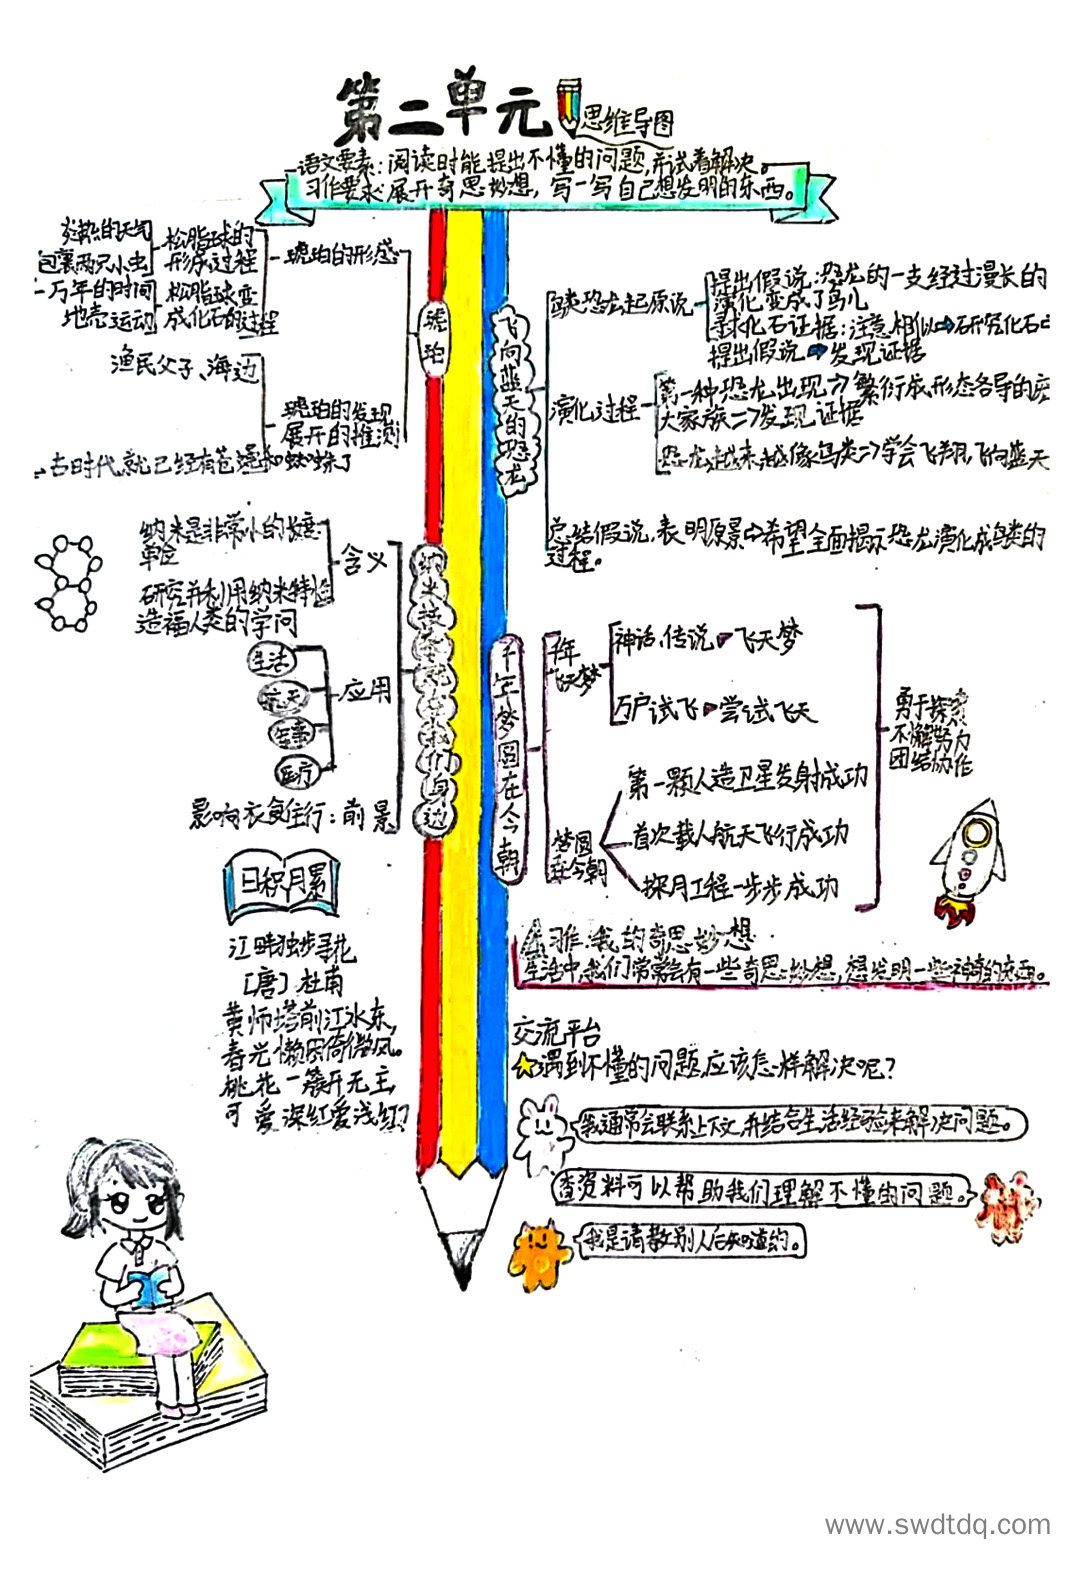 第二单元
思维导图
语文要素：阅读时能提出不懂的问题，并试着解决。
习作要求：展开奇思妙想，写一写自己想发明的东西。
琥珀
琥珀的形成
松脂球的
形成过程
炎热的天气
包裹两只小虫
松脂球变
成化石的过程
一万年的时间
地壳运动
琥珀的发现
展开的推测
渔民父子、海边
古时代就已经有苍蝇和蜘蛛了
飞向蓝天的恐龙
鸟类恐龙起源说
提出假说：恐龙的一支经过漫长的
演化变成了鸟儿
寻求化石证据：注意相似→研究化石
提出假说→发现证据
演化过程
第一种恐龙出现→繁衍成形态各导的
大家族→发现证据
恐龙越来越像鸟类→学会飞翔，飞向蓝天
总结假说，表明原景→希望全面揭示恐龙演化成鸟类的
过程。
纳米技术就在我们身边
含义
纳米是非常小的长度
单位
研究并利用纳米特性
造福人类的学问
应用
生活
航天
军事
医疗
影响衣食住行：前景
千年梦圆在今朝
千年
飞天梦
神话、传说→飞天梦
万户试飞→尝试飞天
梦圆
在今朝
第一颗人造卫星发射成功
首次载人航天飞行成功
探月工程一步步成功
勇于探索
不懈努力
团结协作
日积月累
江畔独步寻花
［唐］杜甫
黄师塔前江水东，
春光懒困倚微风。
桃花一簇开无主，
可爱深红爱浅红？
习作：我的奇思妙想
生活中，我们常常会有一些奇思妙想，想发明一些神奇的东西。
交流平台
遇到不懂的问题，应该怎样解决呢？
我通常会联系上下文，并结合生活经验来解决问题。
查资料可以帮助我们理解不懂的问题。
我是请教别人后知道的。
www.swdtdq.com